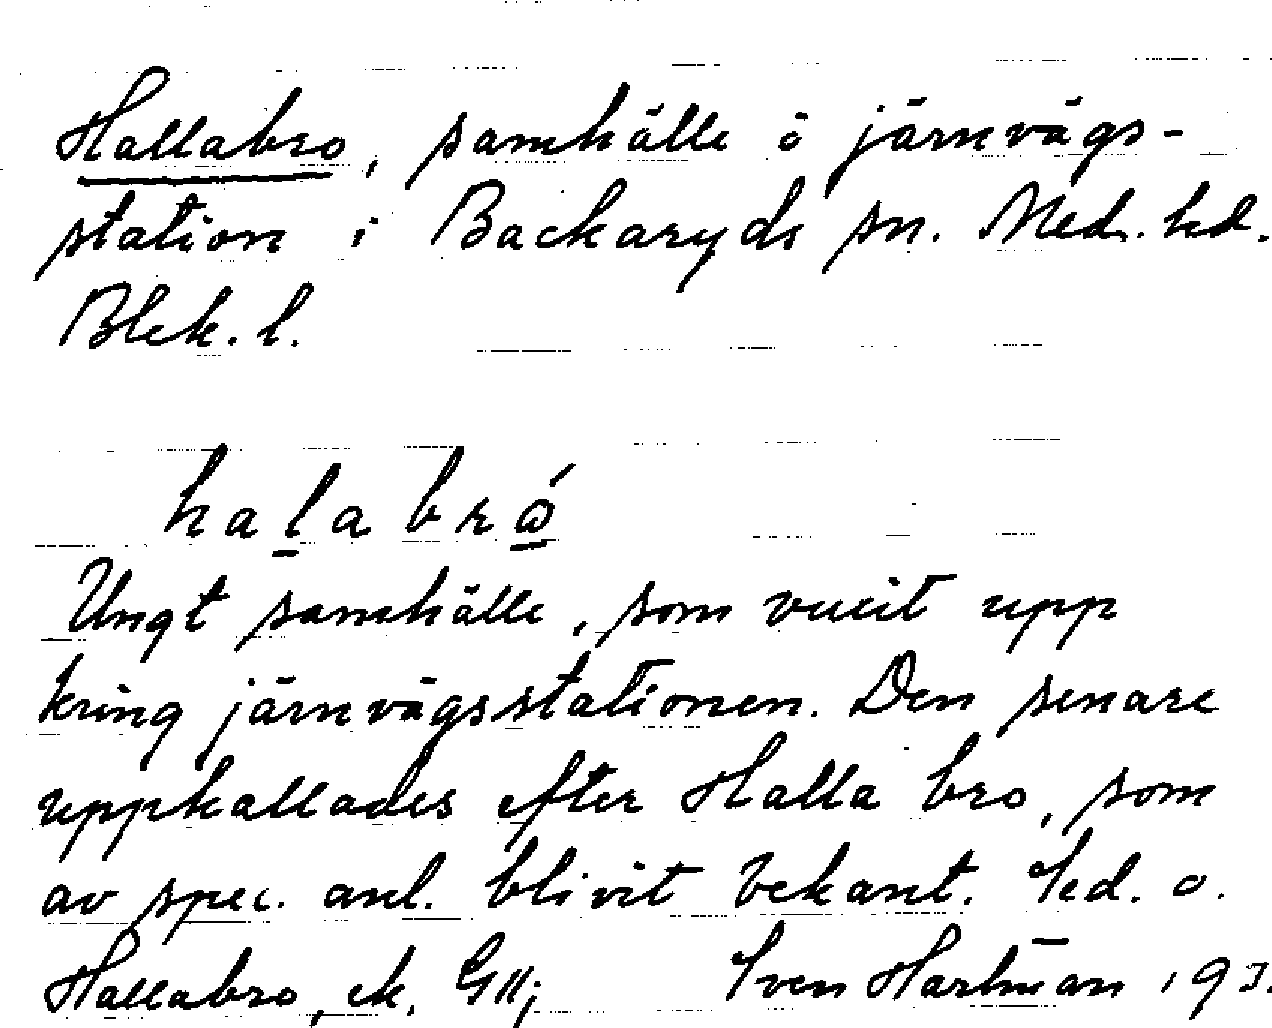 Hallabro, samhälle ö järnvägs-
station i Backaryds sn. Med. hd.
Blek. l.
halabró
Ungt samhälle, som vuxit upp
kring järnvägsstationen. Den senare
uppkallades efter Halla bro, som
av spec. anl. blivit bekant. Sed. o.
Hallabro, ek. G11;
Sven Hartman 193